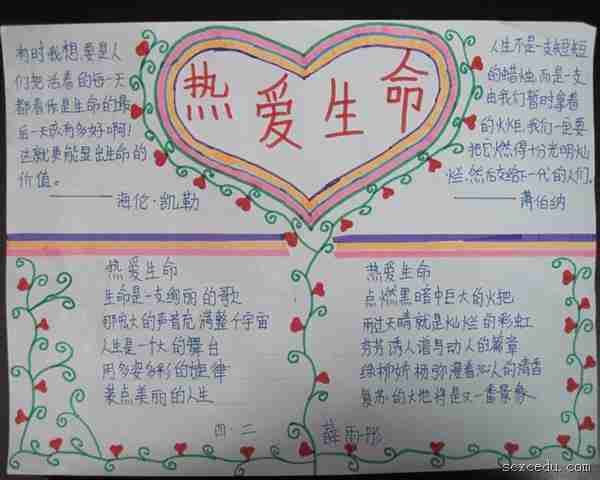 热爱生命
有时我想,要是人
们把活着的每一天
都看作是生命的最
后一天该有多好啊!
这就更能显出生命的
价值。
——海伦·凯勒
人生不是一支短短
的蜡烛,而是一支
由我们暂时拿着
的火炬,我们一定要
把它燃得十分光明灿
烂,然后交给下一代的人们。
——萧伯纳
热爱生命
生命是一支绚丽的歌
那宏大的声音充满整个宇宙
人生是一个大的舞台
用多姿多彩的旋律
装点美丽的人生
热爱生命
点燃黑暗中巨大的火把
雨过天晴就是灿烂的彩虹
诱人谱写动人的篇章
绿柳娇杨弥漫着沁人的清香
复苏的大地将是又一番景象
四·二
薛雨彤
scxcedu.com